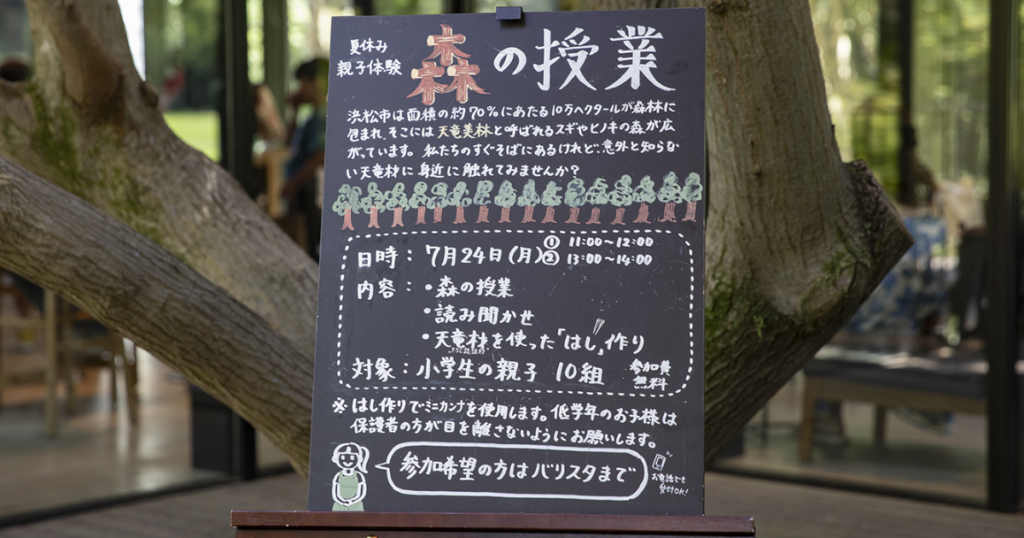 夏休み
親子体験
森の授業
浜松市は面積の約70%にあたる10万ヘクタールが森林に
包まれ、そこには天竜美林と呼ばれるスギやヒノキの森が広
がっています。私たちのすぐそばにあるけれど、意外と知らな
い天竜材に身近に触れてみませんか？
日時：7月24日(月)① 11:00〜12:00
② 13:00〜14:00
内容：・森の授業
・読み聞かせ
・天竜材を使った「はし」作り
対象：小学生の親子 10組
参加費
無料
※はし作りでミニカンナを使用します。低学年のお子様は
保護者の方が目を離さないようにお願いします。
参加希望の方はバリスタまで
お電話でも
受付OK!